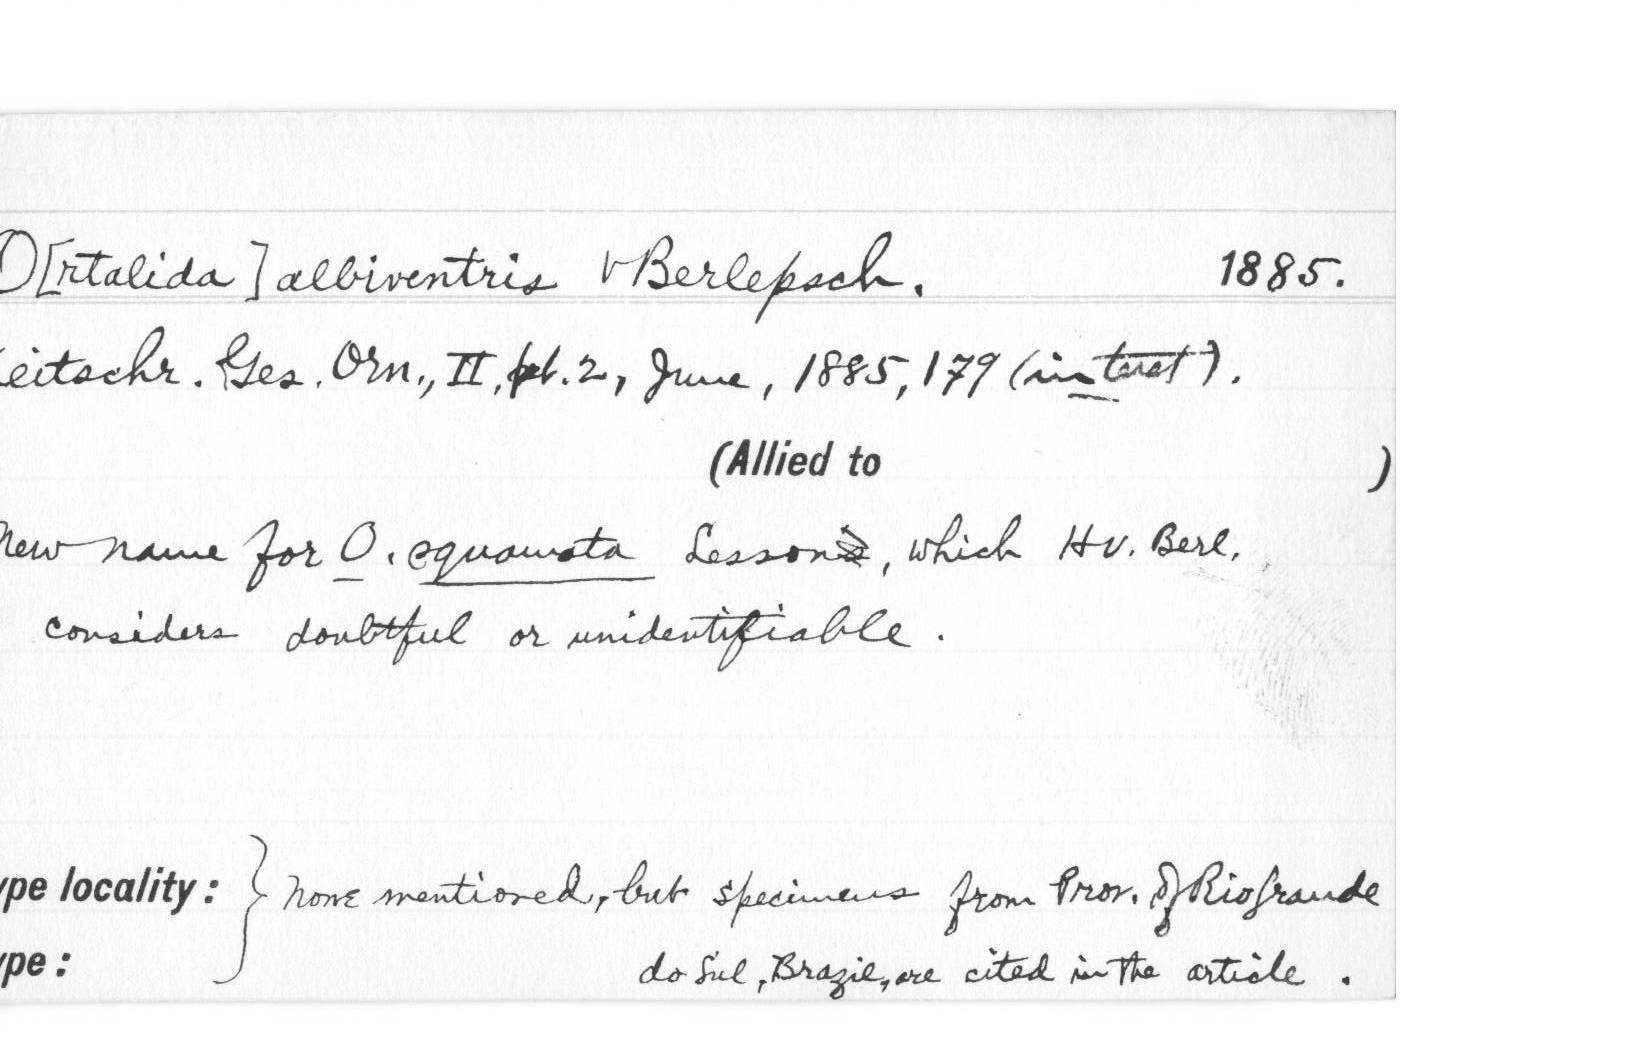 O[rtalida] albiventris v Berlepsch. 1885.
eitschr. Ges. Orn., II, pt. 2, June, 1885, 179 (in text).
(Allied to )
New name for O. squamata Lesson, which H v. Berl.
considers doubtful or unidentifiable.
ype locality: } none mentioned, but specimens from Prov. of Rio Grande
ype: do Sul, Brazil, are cited in the article.